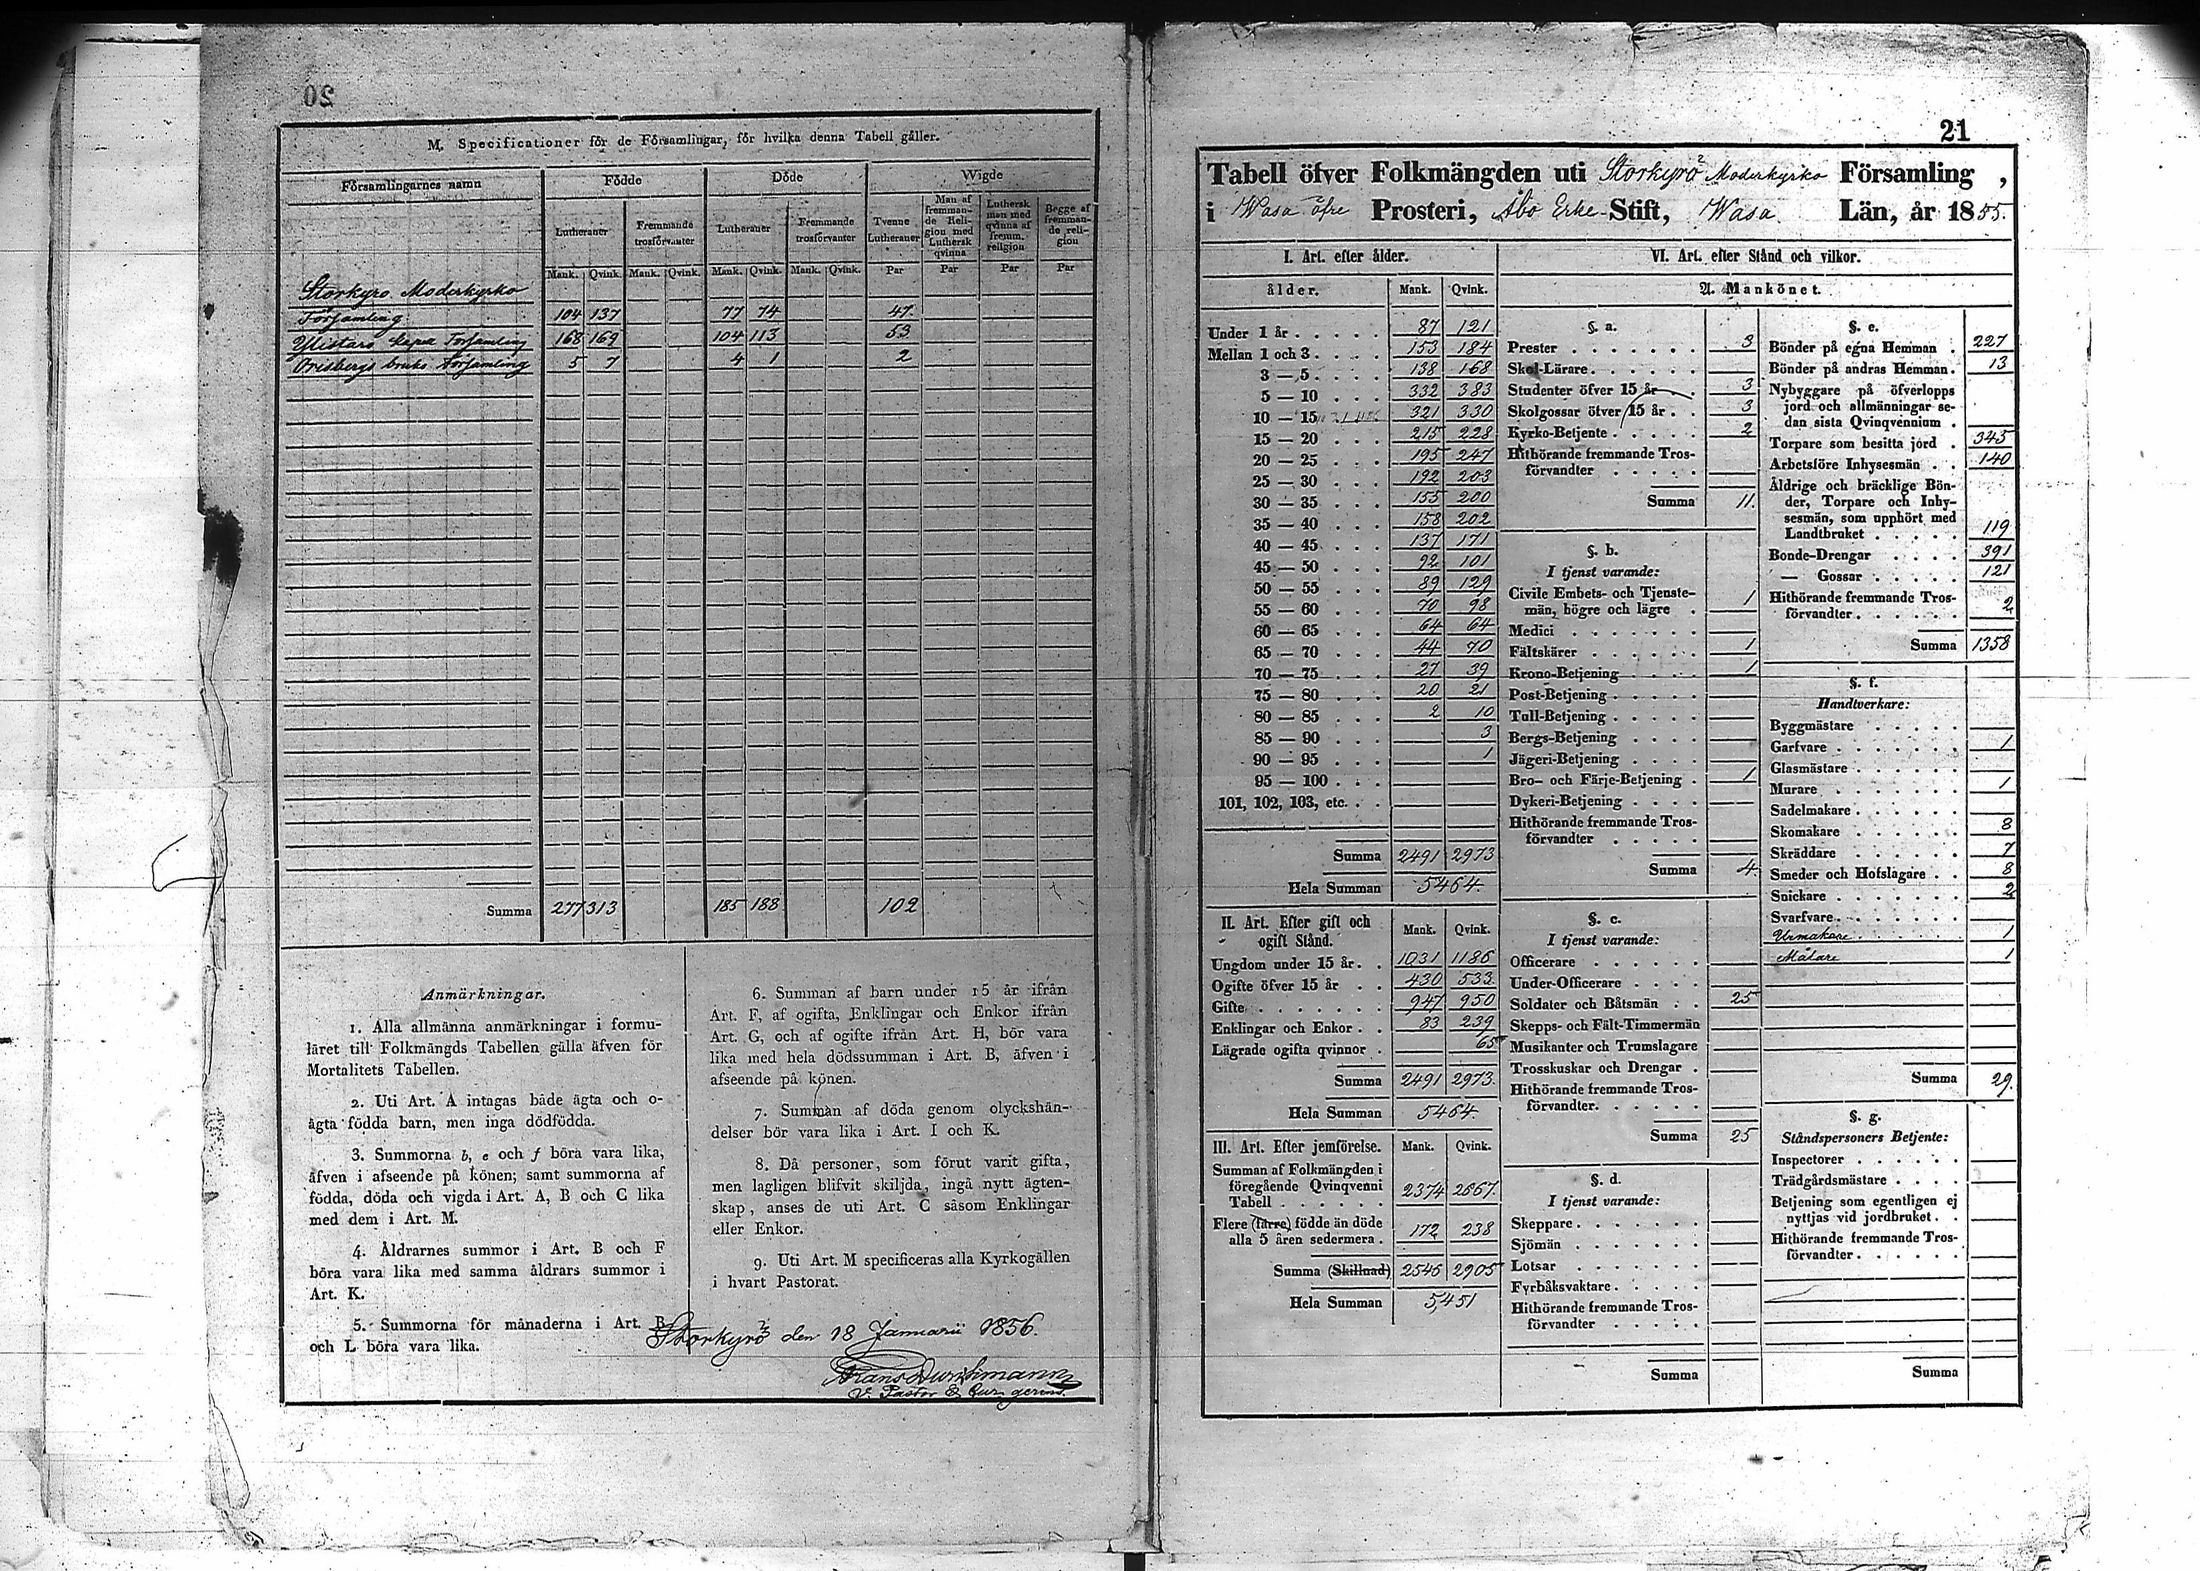 20
M. Specificationer för de Församlingar, för hvilka denna Tabell gäller.
Församlingarnes namn | Födde | Döde | Wigde
Lutheraner | Fremmande trosförvanter | Lutheraner | Fremmande trosförvanter | Tvenne Lutheraner | Man af fremmande Religion med Luthersk qvinna | Luthersk man med qvinna af fremm. religion | Begge af fremmande religion
Mank. Qvink. Mank. Qvink. Mank. Qvink. Mank. Qvink. Par Par Par Par
Storkyro Moderkyrko
Församling 104 137 77 74 47.
Ylistaro Capell Församling 168 169 104 113 53
Orisbergs bruks Församling 5 7 4 1 2
Summa 277 313 185 188 102
Anmärkningar.
1. Alla allmänna anmärkningar i formu-
läret till Folkmängds Tabellen gälla äfven för
Mortalitets Tabellen.
2. Uti Art. A intagas både ägta och o-
ägta födda barn, men inga dödfödda.
3. Summorna b, e och f böra vara lika,
äfven i afseende på könen; samt summorna af
födda, döda och vigda i Art. A, B och C lika
med dem i Art. M.
4. Åldrarnes summor i Art. B och F
böra vara lika med samma åldrars summor i
Art. K.
5. Summorna för månaderna i Art. B
och L böra vara lika.
6. Summan af barn under 15 år ifrån
Art. F, af ogifta, Enklingar och Enkor ifrån
Art. G, och af ogifte ifrån Art. H, bör vara
lika med hela dödssumman i Art. B, äfven i
afseende på könen.
7. Summan af döda genom olyckshän-
delser bör vara lika i Art. I och K.
8. Då personer, som förut varit gifta,
men lagligen blifvit skiljda, ingå nytt ägten-
skap, anses de uti Art. C såsom Enklingar
eller Enkor.
9. Uti Art. M specificeras alla Kyrkogällen
i hvart Pastorat.
Storkyrö den 18 Januarii 1856.
Frans Durchman
V. Pastor & Cur. gerens.
21
Tabell öfver Folkmängden uti Storkyrö Moderkyrko Församling,
i Wasa öfre Prosteri, Åbo Erke-Stift, Wasa Län, år 1855.
I. Art. efter ålder.
ålder. Mank. Qvink.
Under 1 år 87 121
Mellan 1 och 3 153 184
3 — 5 138 168
5 — 10 332 383
10 — 15 321 330
15 — 20 215 228
20 — 25 195 247
25 — 30 192 203
30 — 35 155 200
35 — 40 158 202
40 — 45 137 171
45 — 50 92 101
50 — 55 89 129
55 — 60 70 98
60 — 65 64 64
65 — 70 44 70
70 — 75 27 39
75 — 80 20 21
80 — 85 2 10
85 — 90 3
90 — 95 1
95 — 100
101, 102, 103, etc.
Summa 2491 2973
Hela Summan 5464.
II. Art. Efter gift och
ogift Stånd. Mank. Qvink.
Ungdom under 15 år 1031 1186
Ogifte öfver 15 år 430 533
Gifte 947 950
Enklingar och Enkor 83 239
Lägrade ogifta qvinnor 65
Summa 2491 2973.
Hela Summan 5464.
III. Art. Efter jemförelse. Mank. Qvink.
Summan af Folkmängden i
föregående Qvinqvenni
Tabell 2374 2667.
Flere (färre) födde än döde
alla 5 åren sedermera 172 238
Summa (Skillnad) 2546 2905
Hela Summan 5,451
VI. Art. efter Stånd och vilkor.
A. Mankönet.
§. a.
Prester 3
Skol-Lärare
Studenter öfver 15 år 3
Skolgossar öfver 15 år 3
Kyrko-Betjente 2
Hithörande fremmande Tros-
förvandter
Summa 11.
§. b.
I tjenst varande:
Civile Embets- och Tjenste-
män, högre och lägre 1
Medici
Fältskärer 1
Krono-Betjening 1
Post-Betjening
Tull-Betjening
Bergs-Betjening
Jägeri-Betjening
Bro- och Färje-Betjening 1
Dykeri-Betjening
Hithörande fremmande Tros-
förvandter
Summa 4
§. c.
I tjenst varande:
Officerare
Under-Officerare
Soldater och Båtsmän 25
Skepps- och Fält-Timmermän
Musikanter och Trumslagare
Trosskuskar och Drengar
Hithörande fremmande Tros-
förvandter.
Summa 25
§. d.
I tjenst varande:
Skeppare
Sjömän
Lotsar
Fyrbåksvaktare
Hithörande fremmande Tros-
förvandter
Summa
§. e.
Bönder på egna Hemman 227
Bönder på andras Hemman. 13
Nybyggare på öfverlopps
jord och allmänningar se-
dan sista Qvinqvennium
Torpare som besitta jord 345
Arbetsföre Inhysesmän 140
Åldrige och bräcklige Bön-
der, Torpare och Inhy-
sesmän, som upphört med
Landtbruket 119
Bonde-Drengar 391
— Gossar 121
Hithörande fremmande Tros-
förvandter 2
Summa 1358
§. f.
Handtverkare:
Byggmästare
Garfvare 1
Glasmästare
Murare 1
Sadelmakare
Skomakare 8
Skräddare 7
Smeder och Hofslagare 8
Snickare 2
Svarfvare
Urmakare 1
Målare 1
Summa 29.
§. g.
Ståndspersoners Betjente:
Inspectorer
Trädgårdsmästare
Betjening som egentligen ej
nyttjas vid jordbruket
Hithörande fremmande Tros-
förvandter
Summa